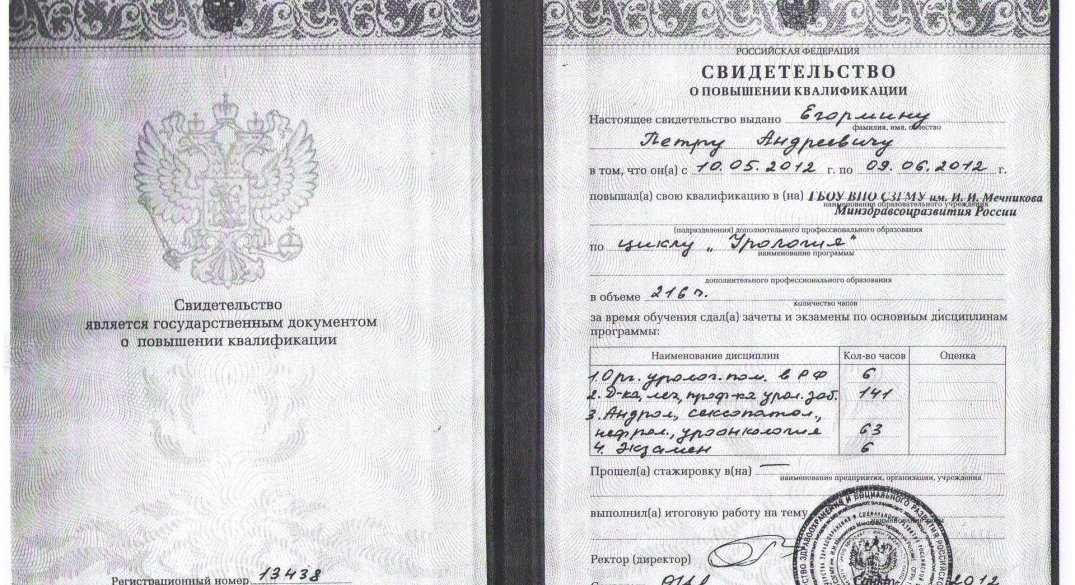 Свидетельство
является государственным документом
о повышении квалификации
Регистрационный номер 13438
РОССИЙСКАЯ ФЕДЕРАЦИЯ
СВИДЕТЕЛЬСТВО
О ПОВЫШЕНИИ КВАЛИФИКАЦИИ
Настоящее свидетельство выдано Егормину
фамилия, имя, отчество
Петру Андреевичу
в том, что он(а) с 10.05.2012 г. по 09.06.2012 г.
повышал(а) свою квалификацию в (на) ГБОУ ВПО СЗГМУ им. И. И. Мечникова
наименование образовательного учреждения
Минздравсоцразвития России
(подразделения) дополнительного профессионального образования
по циклу „Урология"
наименование программы
дополнительного профессионального образования
в объеме 216 ч.
количество часов
за время обучения сдал(а) зачеты и экзамены по основным дисциплинам
программы:
Наименование дисциплин Кол-во часов Оценка
1. Орг. уролог. пом. в РФ 6
2. Д-ка, леч, проф-ка урол. заб. 141
3. Андрол, сексопатол.,
нефрол., уроонкология 63
4. Экзамен 6
Прошел(а) стажировку в(на) —
наименование предприятия, организации, учреждения
выполнил(а) итоговую работу на тему
наименование
Ректор (директор)
Санкт- 2012